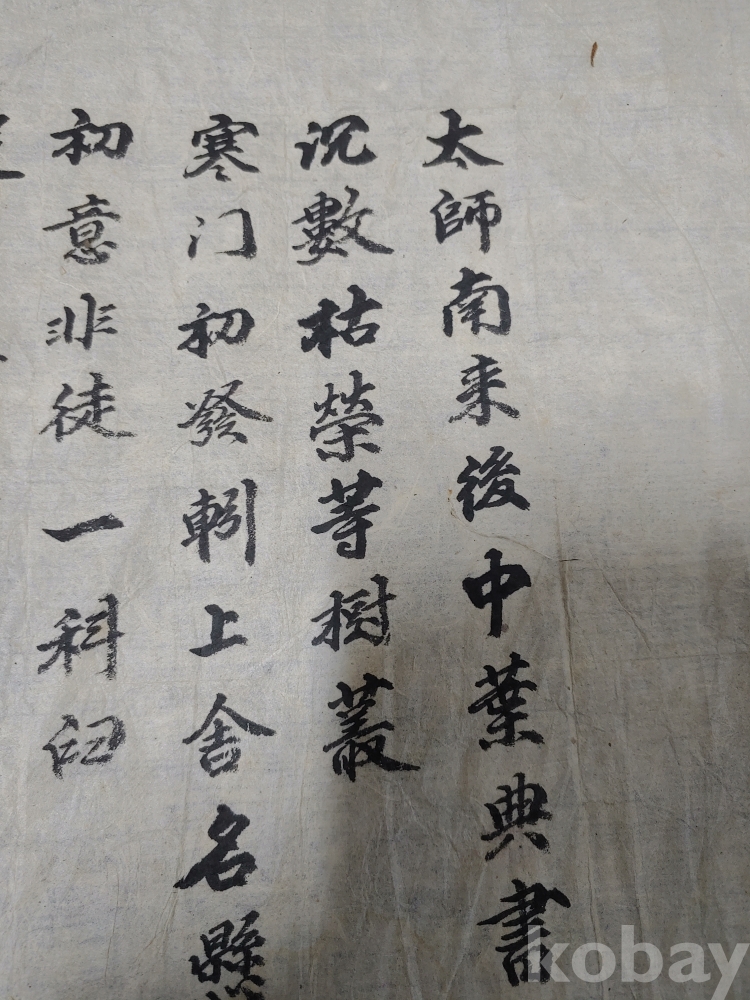 太師南来後中葉典書
沉數枯榮等樹叢
寒门初發軔上舍名縣
初意非徒一科臼
kobay